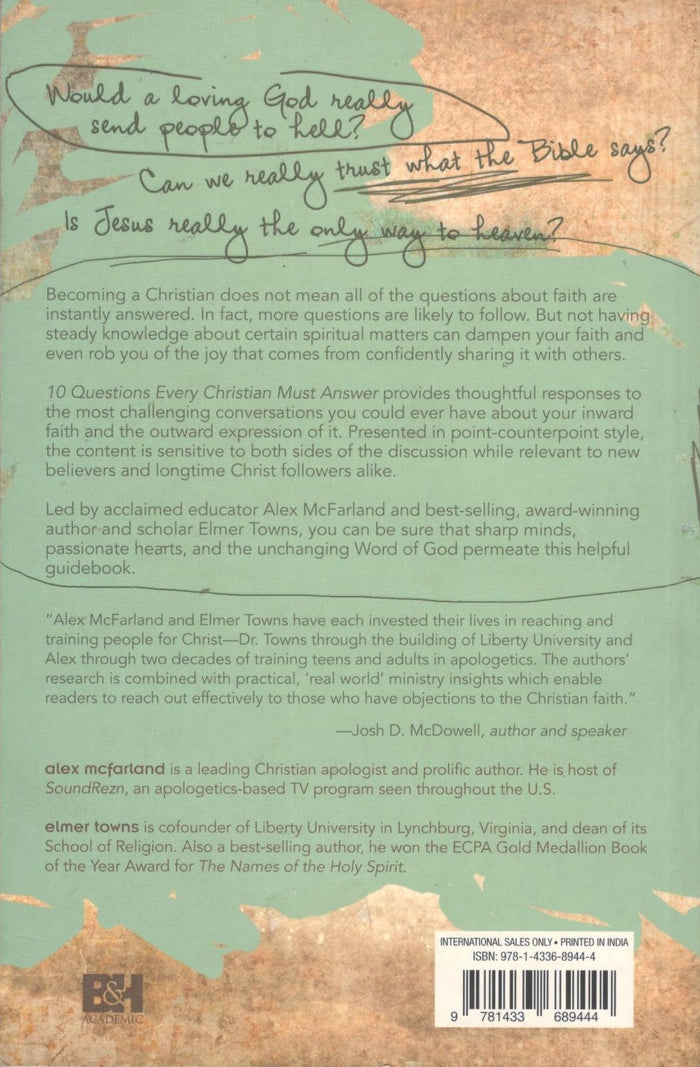 Would a loving God really
send people to hell?
Can we really trust what the Bible says?
Is Jesus really the only way to heaven?
Becoming a Christian does not mean all of the questions about faith are
instantly answered. In fact, more questions are likely to follow. But not having
steady knowledge about certain spiritual matters can dampen your faith and
even rob you of the joy that comes from confidently sharing it with others.
10 Questions Every Christian Must Answer provides thoughtful responses to
the most challenging conversations you could ever have about your inward
faith and the outward expression of it. Presented in point-counterpoint style,
the content is sensitive to both sides of the discussion while relevant to new
believers and longtime Christ followers alike.
Led by acclaimed educator Alex McFarland and best-selling, award-winning
author and scholar Elmer Towns, you can be sure that sharp minds,
passionate hearts, and the unchanging Word of God permeate this helpful
guidebook.
“Alex McFarland and Elmer Towns have each invested their lives in reaching and
training people for Christ—Dr. Towns through the building of Liberty University and
Alex through two decades of training teens and adults in apologetics. The authors’
research is combined with practical, ‘real world’ ministry insights which enable
readers to reach out effectively to those who have objections to the Christian faith.”
—Josh D. McDowell, author and speaker
alex mcfarland is a leading Christian apologist and prolific author. He is host of
SoundRezn, an apologetics-based TV program seen throughout the U.S.
elmer towns is cofounder of Liberty University in Lynchburg, Virginia, and dean of its
School of Religion. Also a best-selling author, he won the ECPA Gold Medallion Book
of the Year Award for The Names of the Holy Spirit.
INTERNATIONAL SALES ONLY • PRINTED IN INDIA
ISBN: 978-1-4336-8944-4
9 781433 689444
B&H
ACADEMIC